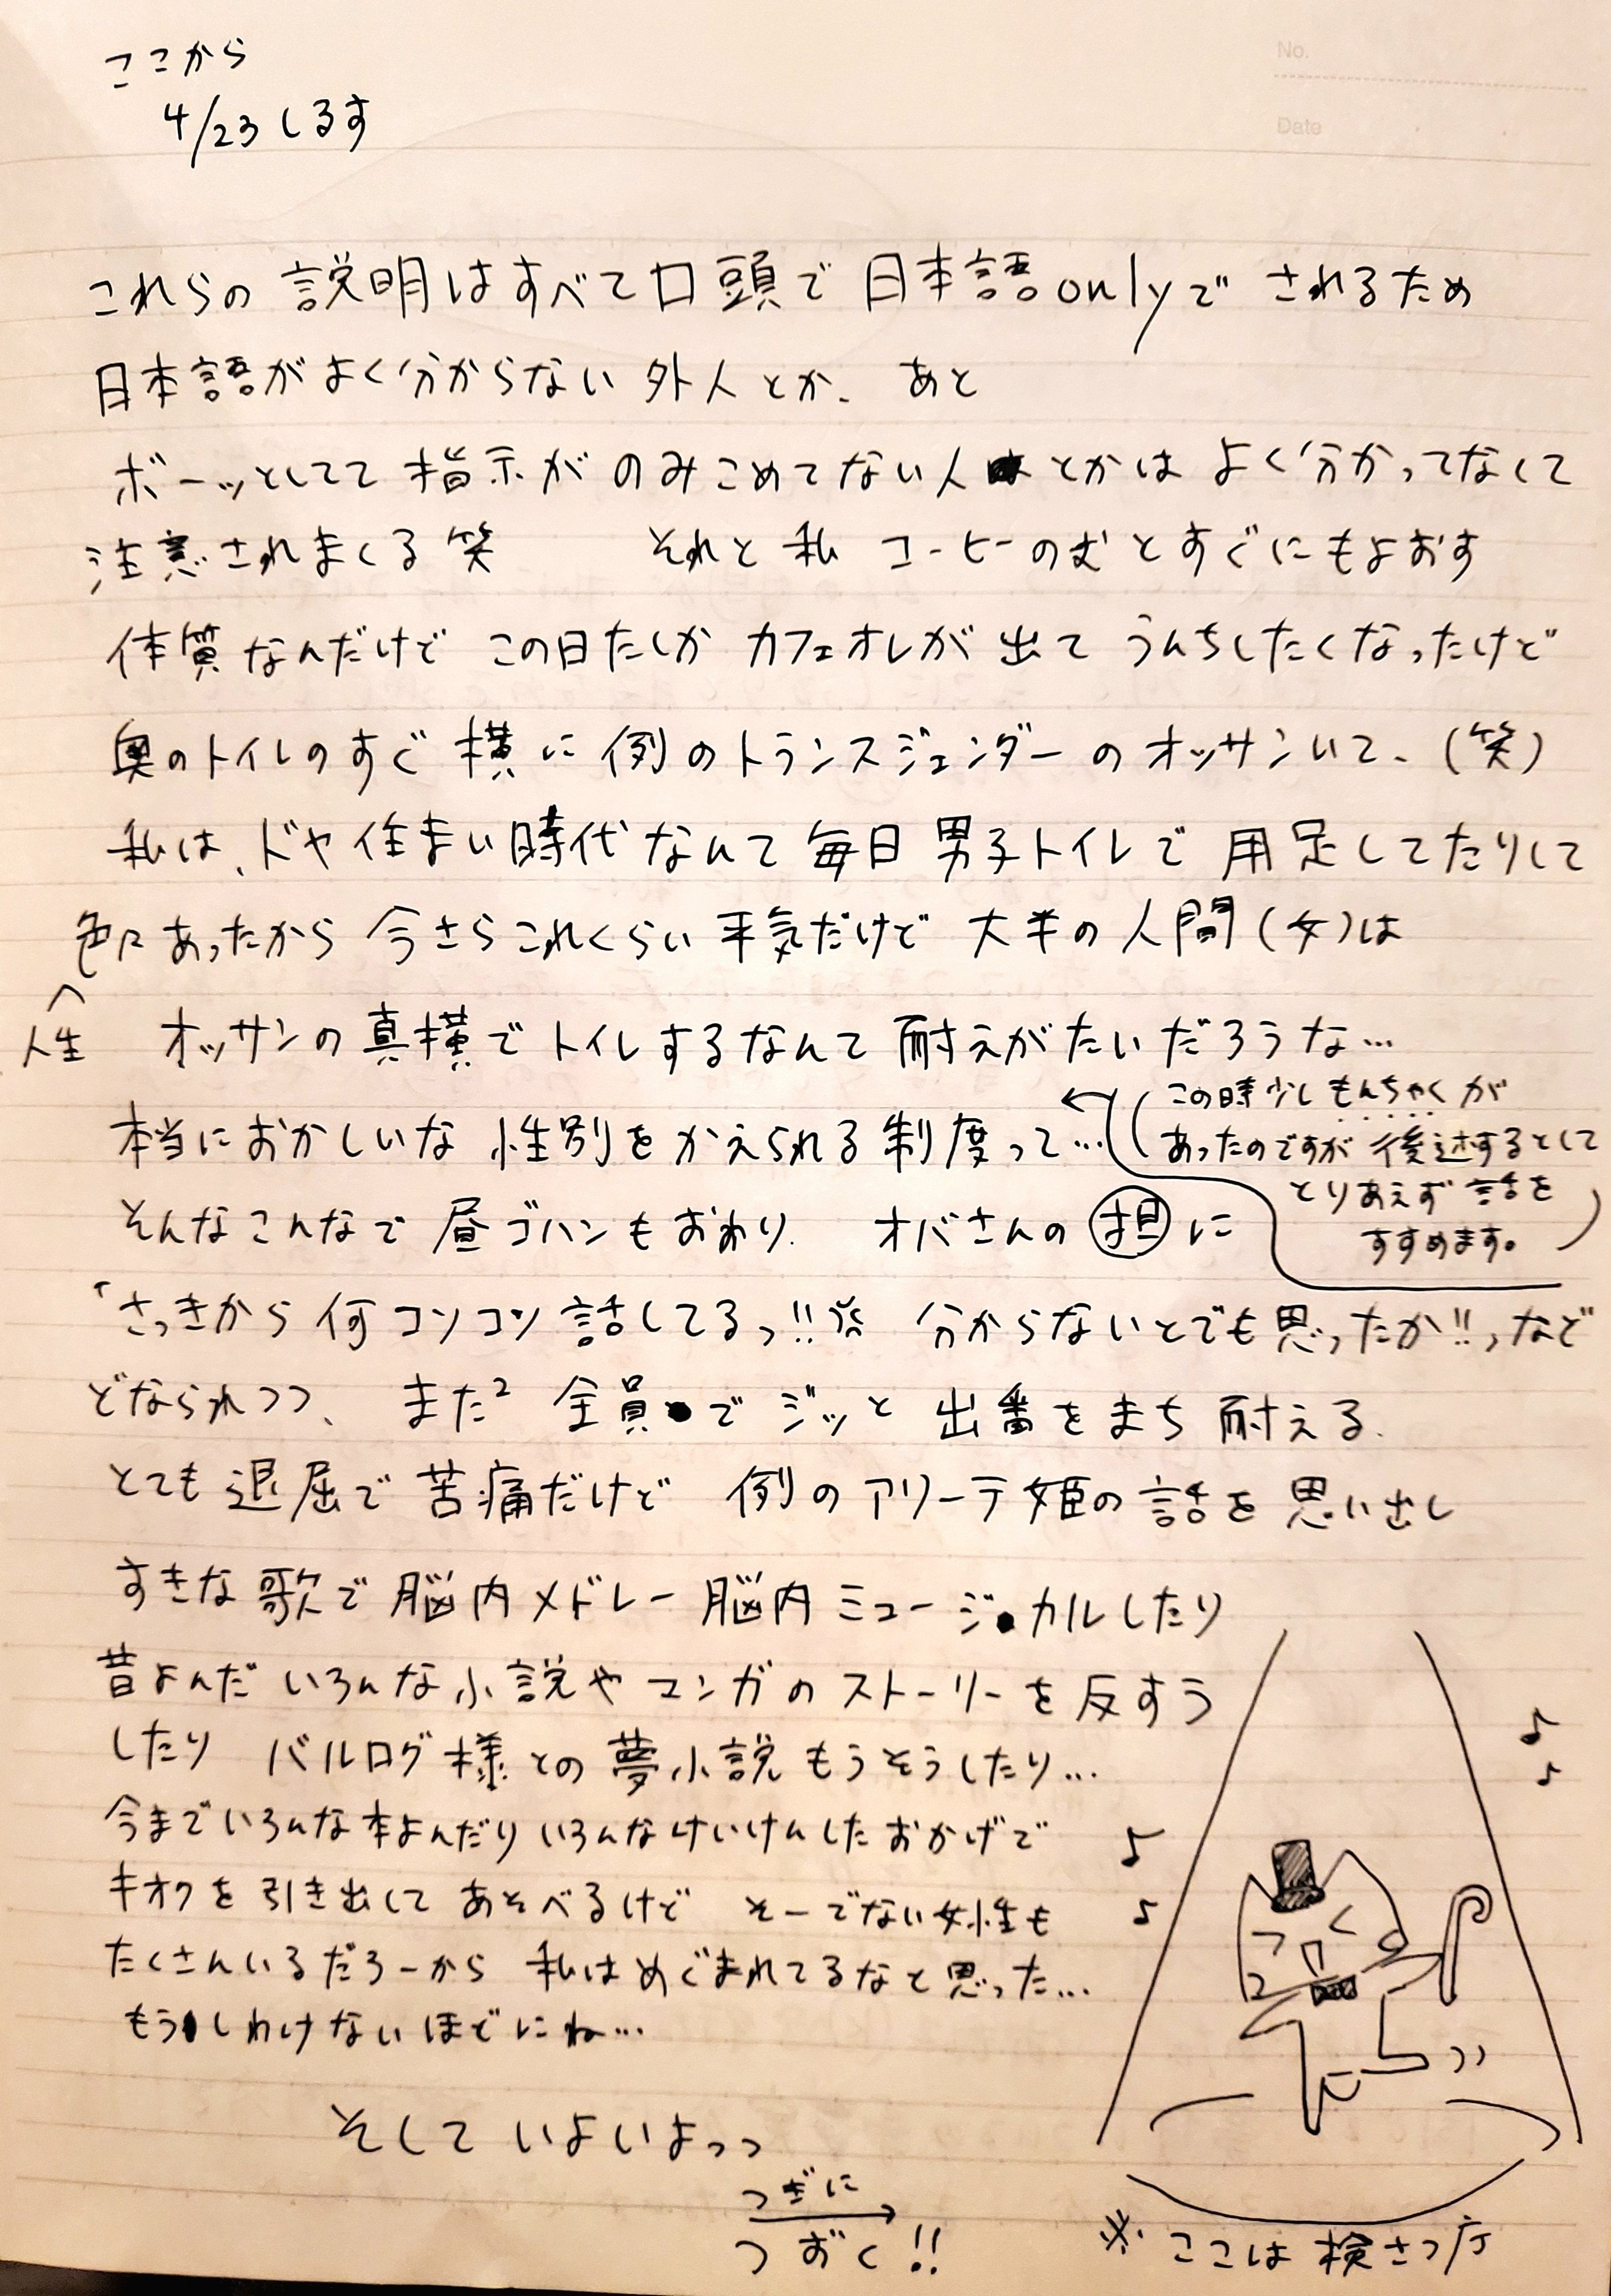 ここから
4/23 しるす
No.
Date
これらの説明はすべて口頭で日本語onlyで されるため
日本語がよく分からない外人とか、あと
ボーッとしてて指示がのみこめてない人とかは よく分かってなくて
注意されまくる笑 それと私 コーヒーのむとすぐにもよおす
体質なんだけど この日たしか カフェオレが出て うんちしたくなったけど
奥のトイレのすぐ横に例のトランスジェンダーのオッサンいて、(笑)
私は、ドヤ住まい時代なんて毎日男子トイレで用足してたりして
色々あったから今さらこれくらい平気だけど 大半の人間(女)は
人生
オッサンの真横でトイレするなんて耐えがたいだろうな…
本当におかしいな 性別をかえられる制度って…
(この時少しもんちゃくが
あったのですが後述するとして
とりあえず話を
すすめます。)
そんなこんなで昼ゴハンもおわり、 オバさんの担に
「さっきから何コソコソ話してるっ!! 分からないとでも思ったか!!」など
どなられつつ、 また2 全員で ジッと出番をまち耐える、
とても退屈で苦痛だけど 例のアリーテ姫の話を思い出し
すきな歌で脳内メドレー脳内ミュージカルしたり
昔よんだいろんな小説やマンガのストーリーを反すう
したり バルログ様との夢小説もうそうしたり…
今までいろんな本よんだりいろんなけいけんしたおかげで
キオクを引き出してあそべるけど そーでない女性も
たくさんいるだろーから 私はめぐまれてるなと思った…
もうしわけないほどにね…
そして いよいよっっ
つぎに
つづく!!
※ここは検さつ庁